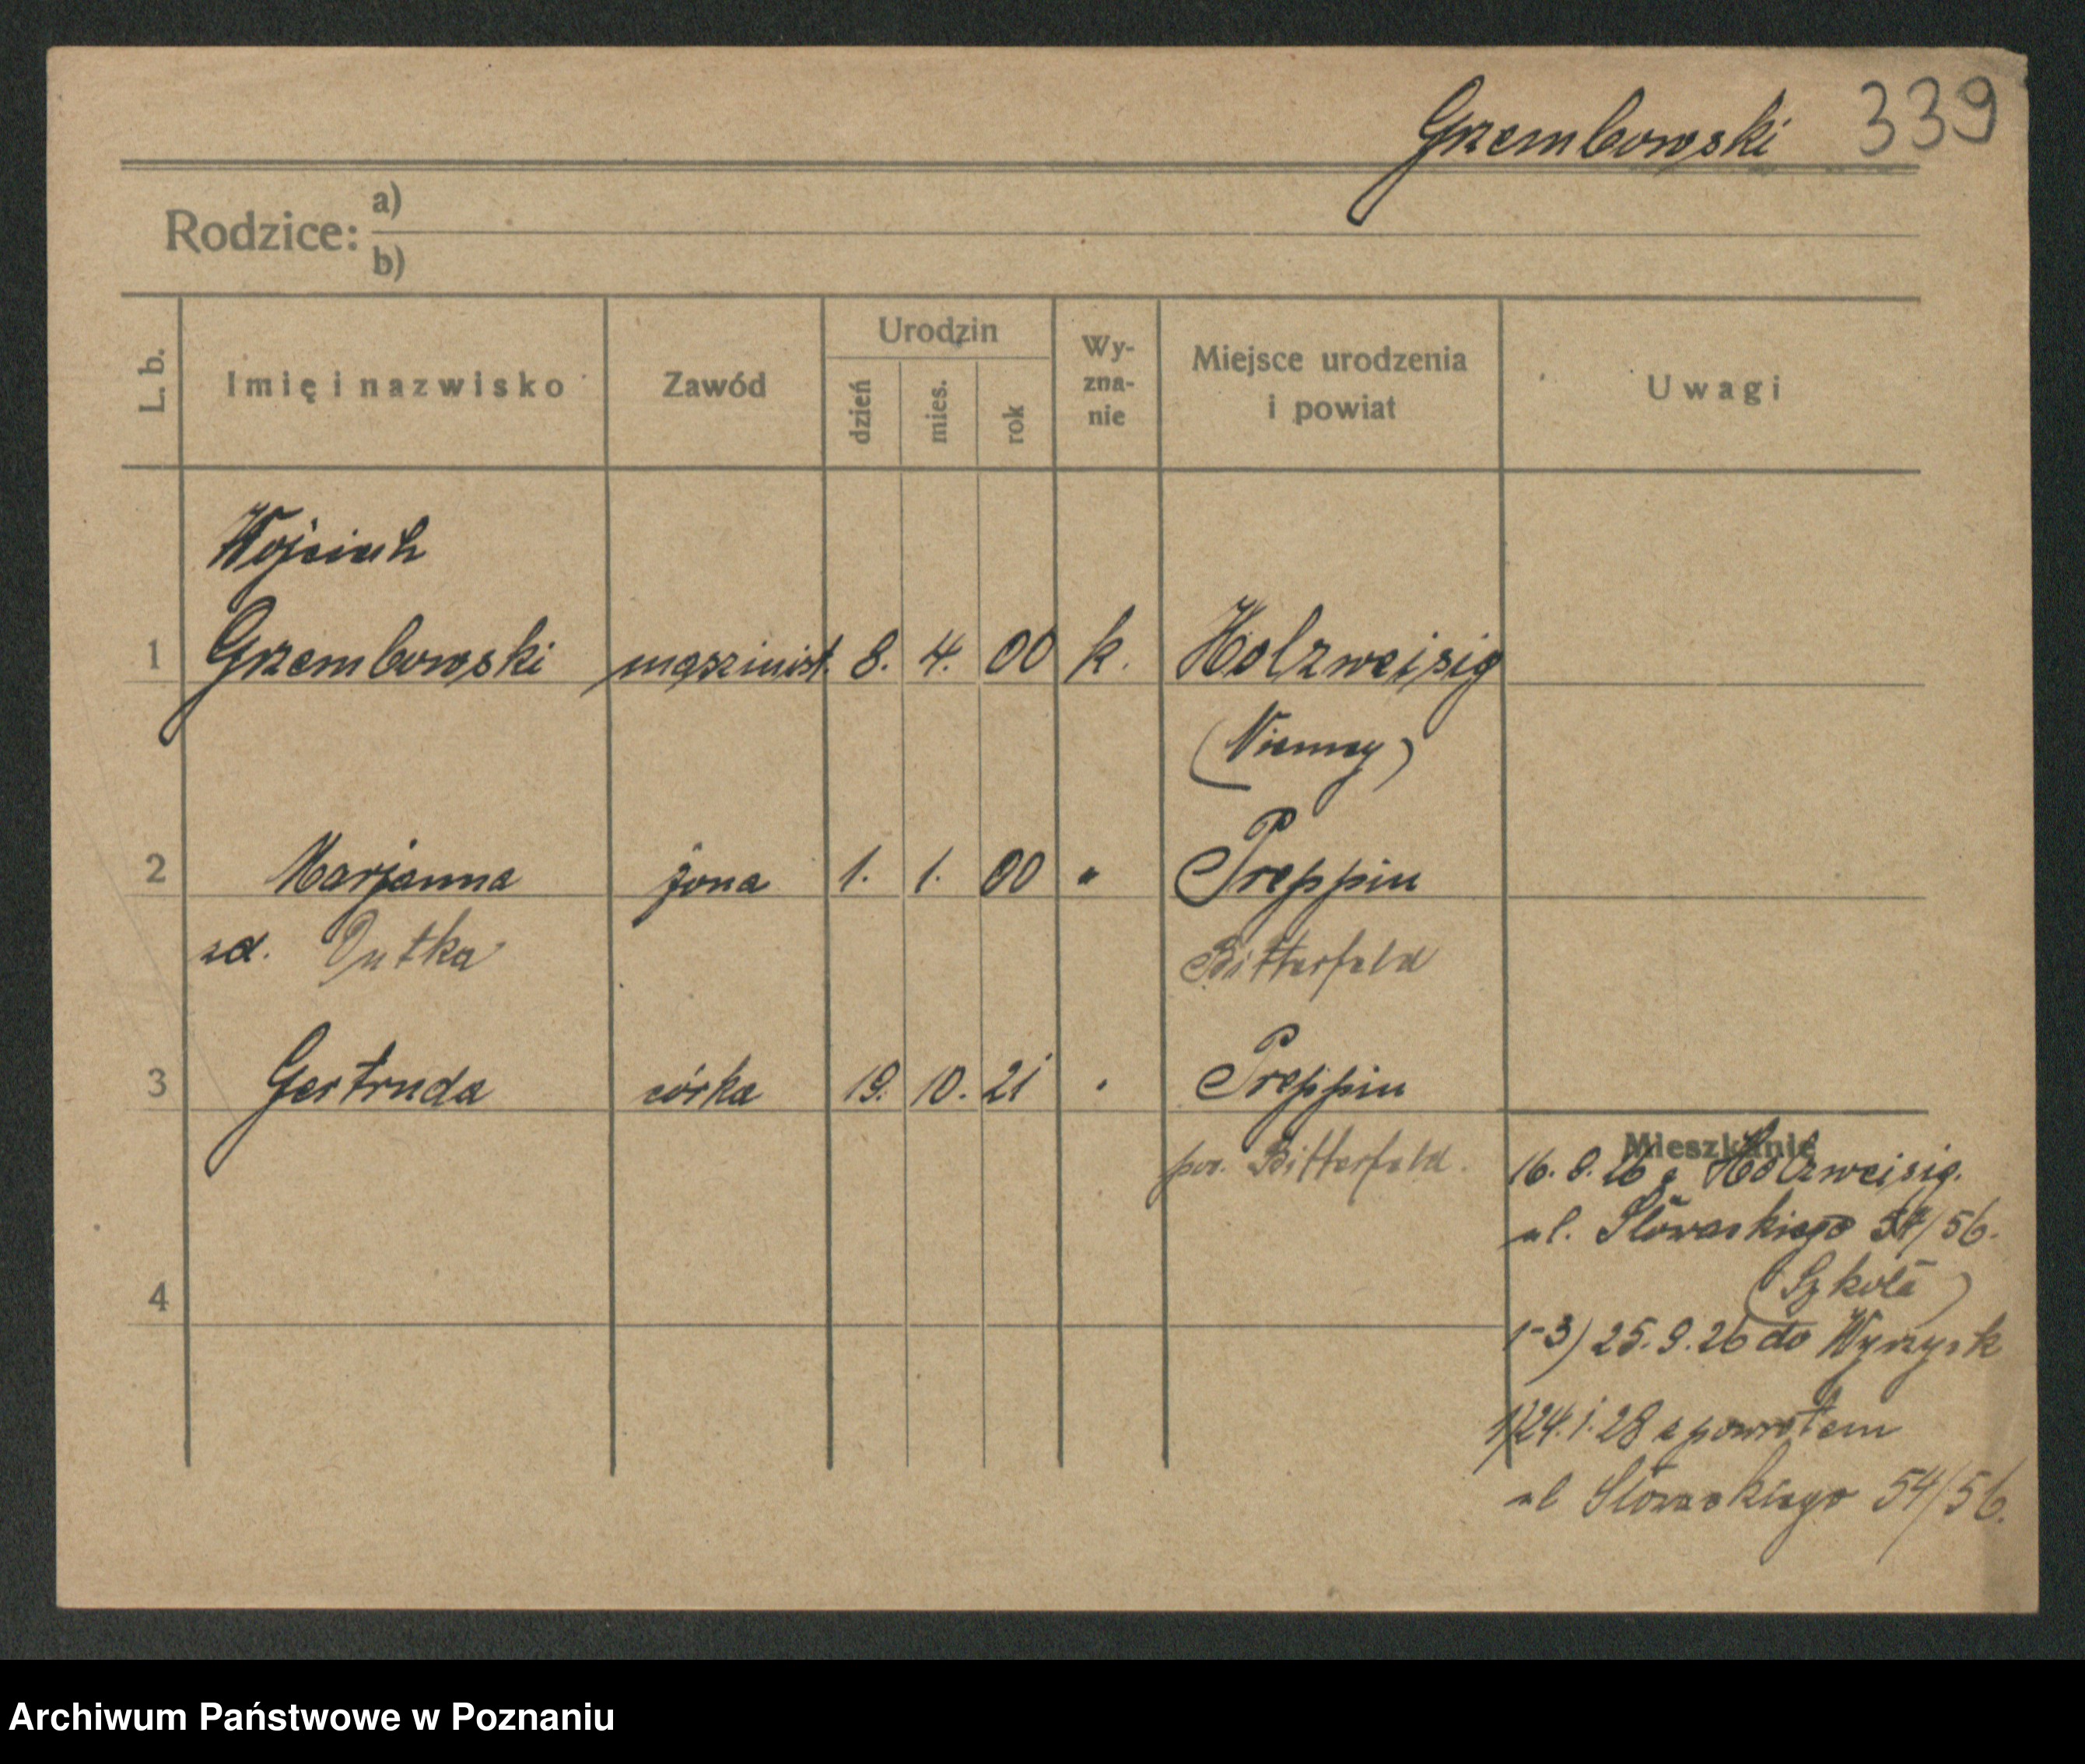 Grzembowski 339
Rodzice: a)
b)
L. b. Imię i nazwisko Zawód Urodzin dzień mies. rok Wy-zna-nie Miejsce urodzenia i powiat Uwagi
Wojciech
1 Grzembowski maszinist. 8. 4. 00 k. Holzweisig
(Niemcy)
2 Marjanna żona 1. 1. 00 " Greppin
zd. Dutka Bitterfeld
3 Gertruda córka 19. 10. 21 " Greppin
pow. Bitterfeld.
Mieszkanie
16. 8. 26 z Holzweisig.
ul. Słowackiego 54/56.
(Szkoła)
4
1-3) 25. 9. 26 do Wyrzysk
1) 24. 1. 28 z powrotem
ul Słowackiego 54/56.
Archiwum Państwowe w Poznaniu